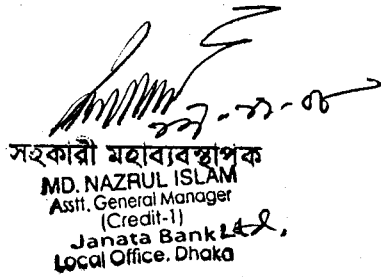 সহকারী মহাব্যবস্থাপক
MD. NAZRUL ISLAM
Asstt. General Manager
(Credit-1)
Janata Bank Ltd.
Local Office, Dhaka